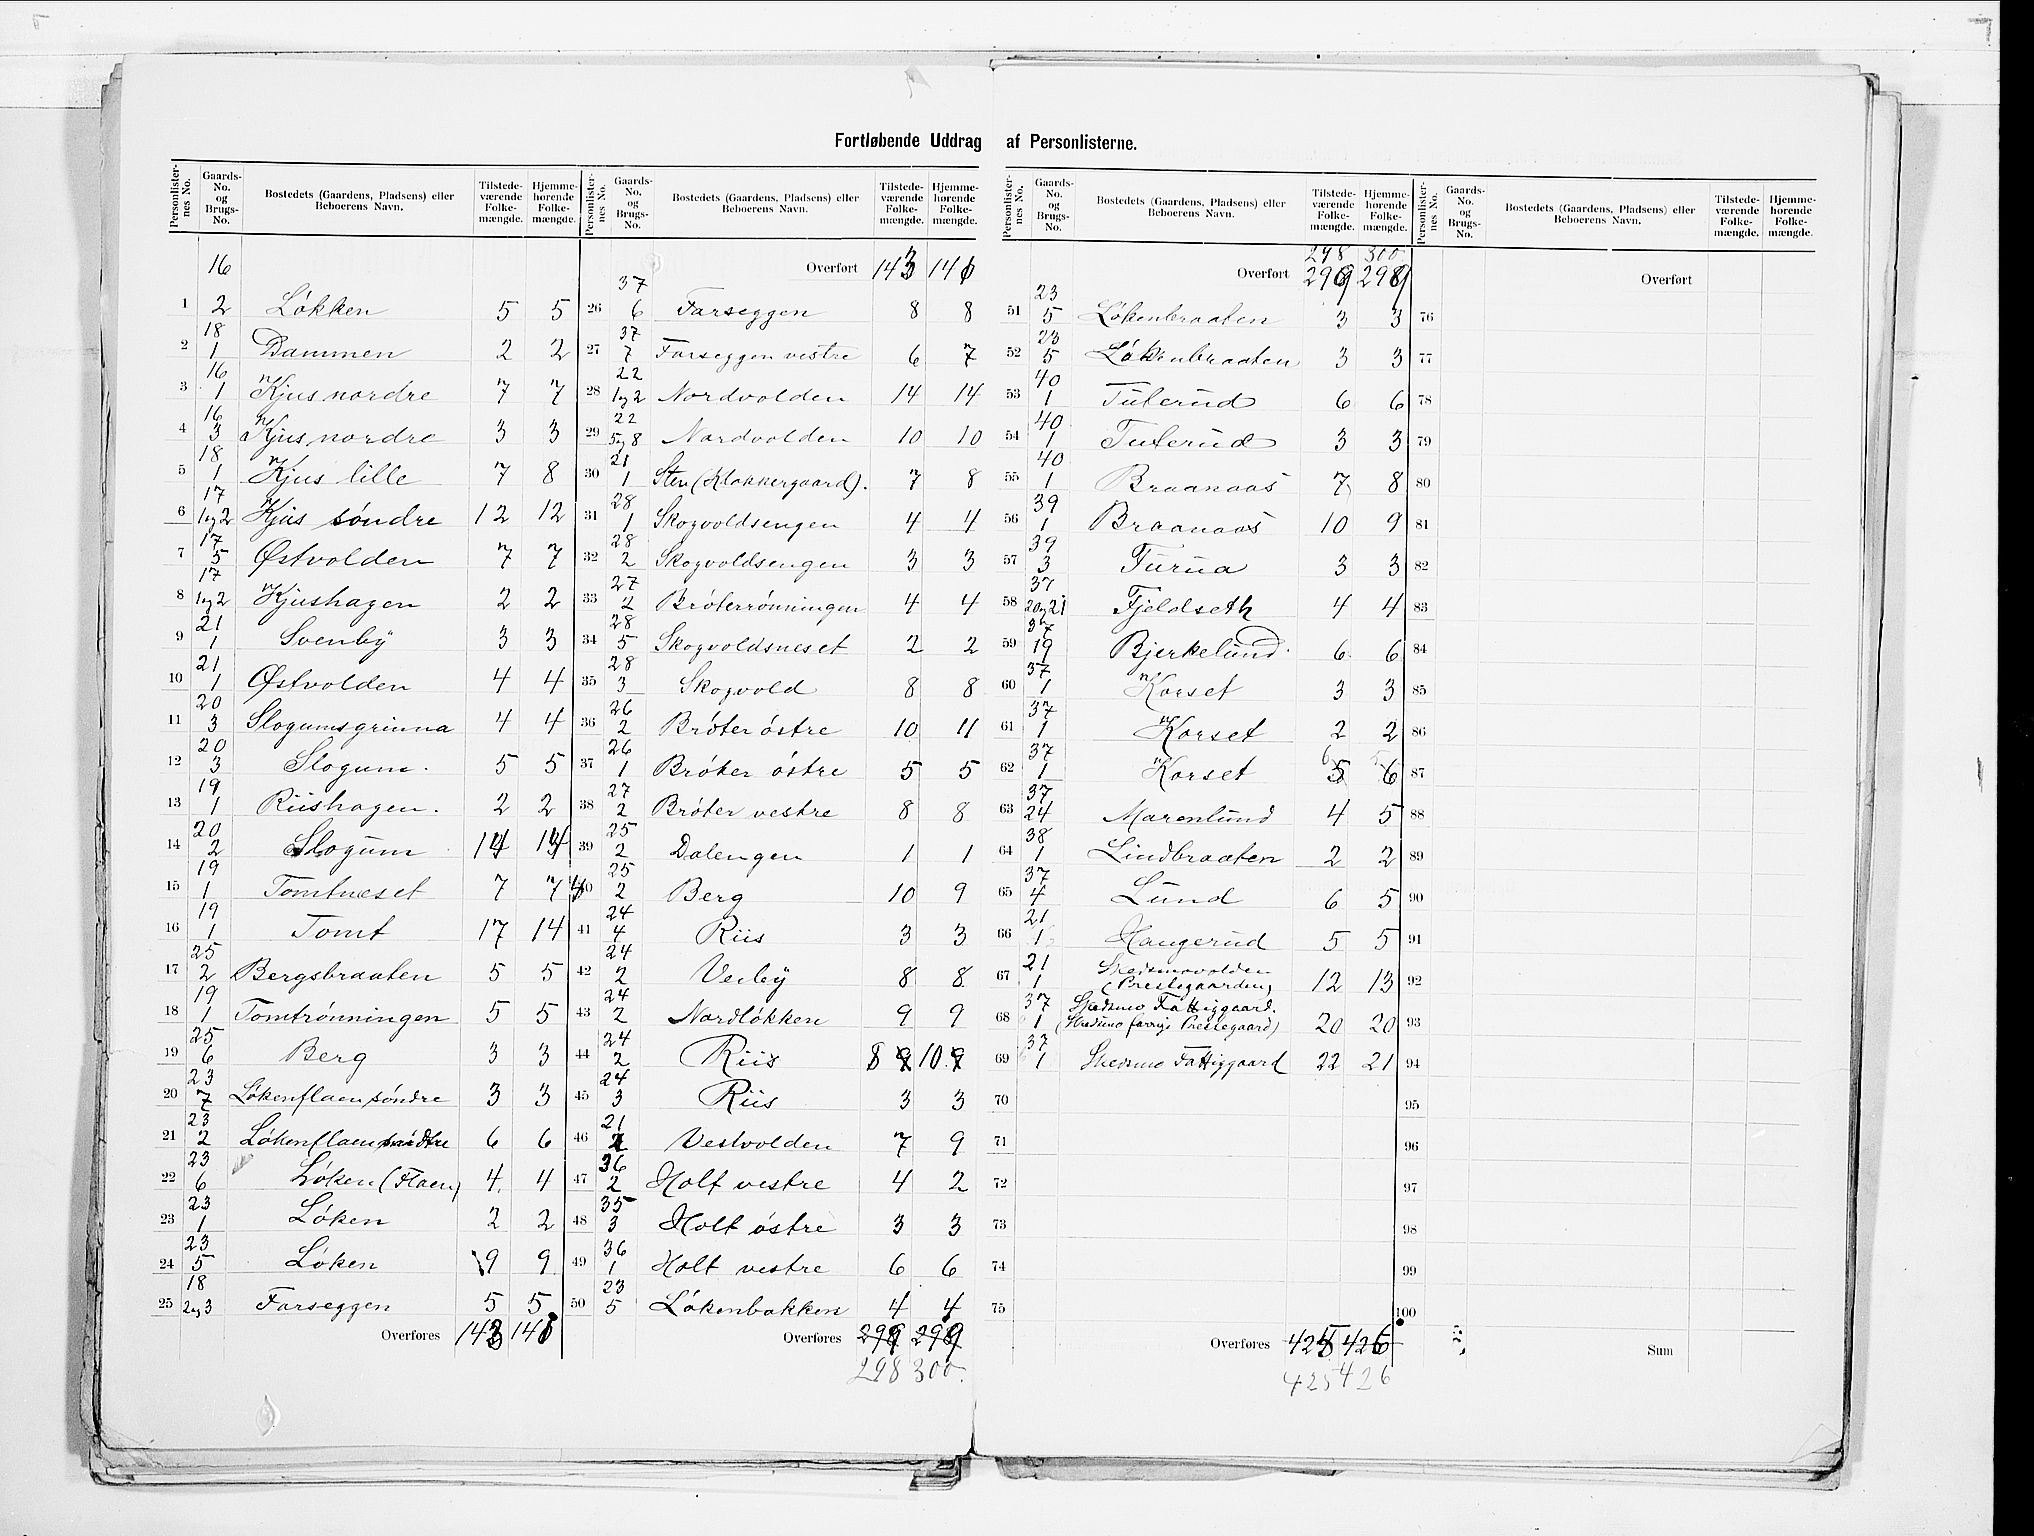 Fortløbende Uddrag af Personlisterne.
Personlister-nes No. | Gaards-No. og Brugs-No. | Bostedets (Gaardens, Pladsens) eller Beboerens Navn. | Tilstede-værende Folke-mængde. | Hjemme-hørende Folke-mængde.
1 | 16 2 | Løkken | 5 | 5
2 | 18 1 | Dammen | 2 | 2
3 | 16 1 | Kjus nordre | 7 | 7
4 | 16 3 | Kjus nordre | 3 | 3
5 | 18 1 | Kjus lille | 7 | 8
6 | 17 1og2 | Kjus søndre | 12 | 12
7 | 17 5 | Østvolden | 7 | 7
8 | 17 1og2 | Kjushagen | 2 | 2
9 | 21 1 | Svenby | 3 | 3
10 | 21 1 | Østvolden | 4 | 4
11 | 20 3 | Slogumsgrinna | 4 | 4
12 | 20 3 | Slogum. | 5 | 5
13 | 19 1 | Riishagen. | 2 | 2
14 | 20 2 | Slogum | 14 | 14
15 | 19 1 | Tomtneset | 7 | 7
16 | 19 1 | Tomt | 17 | 14
17 | 25 2 | Bergsbraaten | 5 | 5
18 | 19 1 | Tomtrønningen | 5 | 5
19 | 25 6 | Berg | 3 | 3
20 | 23 7 | Løkenflaen søndre | 3 | 3
21 | 23 2 | Løkenflaen | 6 | 6
22 | 23 6 | Løken (Flaen) | 4 | 4
23 | 23 1 | Løken | 2 | 2
24 | 23 5 | Løken | 9 | 9
25 | 18 2og3 | Farseggen | 5 | 5
Overføres 143 141
Personlister-nes No. | Gaards-No. og Brugs-No. | Bostedets (Gaardens, Pladsens) eller Beboerens Navn. | Tilstede-værende Folke-mængde. | Hjemme-hørende Folke-mængde.
Overført 143 141
26 | 37 6 | Farseggen | 8 | 8
27 | 37 7 | Farseggen vestre | 6 | 7
28 | 22 1og2 | Nordvolden | 14 | 14
29 | 22 5og8 | Nordvolden | 10 | 10
30 | 21 1 | Sten (Klokkergaard). | 7 | 8
31 | 28 1 | Skogvoldsengen | 4 | 4
32 | 28 2 | Skogvoldsengen | 3 | 3
33 | 27 2 | Brøterrønningen | 4 | 4
34 | 28 5 | Skogvoldsneset | 2 | 2
35 | 28 3 | Skogvold | 8 | 8
36 | 26 2 | Brøter østre | 10 | 11
37 | 26 1 | Brøter østre | 5 | 5
38 | 27 2 | Brøter vestre | 8 | 8
39 | 25 2 | Dalengen | 1 | 1
40 | 25 2 | Berg | 10 | 9
41 | 24 4 | Riis | 3 | 3
42 | 24 2 | Veiby | 8 | 8
43 | 24 2 | Nordløkken | 9 | 9
44 | 24 2 | Riis | 8 9 | 10 9
45 | 24 3 | Riis | 3 | 3
46 | 21 2 | Vestvolden | 7 | 9
47 | 36 2 | Holt vestre | 4 | 2
48 | 35 3 | Holt østre | 3 | 3
49 | 36 1 | Holt vestre | 6 | 6
50 | 23 5 | Løkenbakken | 4 | 4
Overføres 299 299
298 300.
Personlister-nes No. | Gaards-No. og Brugs-No. | Bostedets (Gaardens, Pladsens) eller Beboerens Navn. | Tilstede-værende Folke-mængde. | Hjemme-hørende Folke-mængde.
298 300
Overført 299 299
51 | 23 5 | Løkenbraaten | 3 | 3
52 | 23 5 | Løkenbraaten | 3 | 3
53 | 40 1 | Tuterud | 6 | 6
54 | 40 1 | Tuterud | 3 | 3
55 | 40 1 | Braanaas | 7 | 8
56 | 39 1 | Braanaas | 10 | 9
57 | 39 3 | Furua | 3 | 3
58 | 37 20og21 | Fjeldseth | 4 | 4
59 | 37 19 | Bjerkelund. | 6 | 6
60 | 37 1 | Korset | 3 | 3
61 | 37 1 | Korset | 2 | 2
62 | 37 1 | Korset | 5 | 6
63 | 37 24 | Marenlund | 4 | 5
64 | 38 1 | Lindbraaten | 2 | 2
65 | 37 4 | Lund | 6 | 5
66 | 21 1 | Haugerud | 5 | 5
67 | 21 1 | Skedsmovolden (Prestegaarden) | 12 | 13
68 | 37 1 | Skedsmo Fattiggaard. (Skedsmo forrige Prestegaard) | 20 | 20
69 | 37 1 | Skedsmo Fattiggaard | 22 | 21
70
71
72
73
74
75
Overføres 425 426
425 426
Personlister-nes No. | Gaards-No. og Brugs-No. | Bostedets (Gaardens, Pladsens) eller Beboerens Navn. | Tilstede-værende Folke-mængde. | Hjemme-hørende Folke-mængde.
Overført
76
77
78
79
80
81
82
83
84
85
86
87
88
89
90
91
92
93
94
95
96
97
98
99
100
Sum